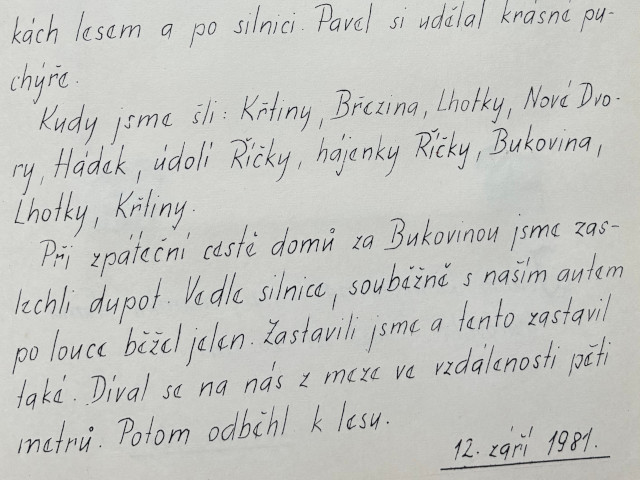 kách lesem a po silnici. Pavel si udělal krásné pu-
chýře.
Kudy jsme šli: Křtiny, Březina, Lhotky, Nové Dvo-
ry, Hádek, údolí Říčky, hájenky Říčky, Bukovina,
Lhotky, Křtiny.
Při zpáteční cestě domů za Bukovinou jsme zas-
lechli dupot. Vedle silnice, souběžně s naším autem
po louce běžel jelen. Zastavili jsme a tento zastavil
také. Díval se na nás z meze ve vzdálenosti pěti
metrů. Potom odběhl k lesu.
12. září 1981.